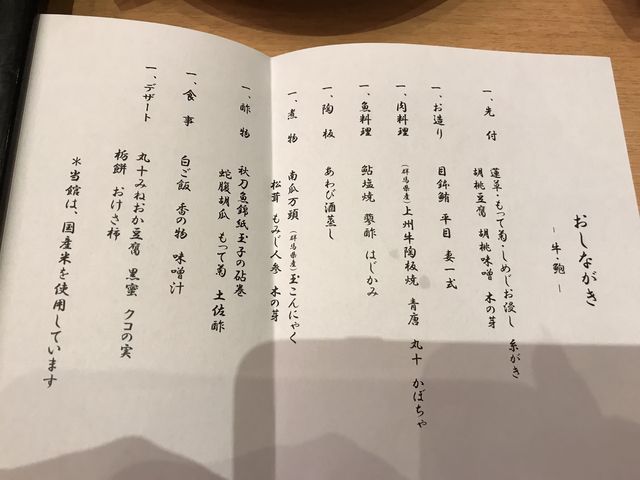 おしながき
― 牛・鮑 ―
一、先付
蓮草・もって菊・しめじお浸し 糸がき
胡桃豆腐 胡桃味噌 木の芽
一、お造り
目鉢鮪 平目 妻一式
一、肉料理
(群馬県産)上州牛陶板焼 青唐 丸十 かぼちゃ
一、魚料理
鮎塩焼 蓼酢 はじかみ
一、陶板
あわび酒蒸し
一、煮物
南瓜万頭 (群馬県産)玉こんにゃく
松茸 もみじ人参 木の芽
一、酢物
秋刀魚錦紙玉子の砧巻
蛇腹胡瓜 もって菊 土佐酢
一、食事
白ご飯 香の物 味噌汁
一、デザート
丸十みねおか豆腐 黒蜜 クコの実
栃餅 おけさ柿
＊当館は、国産米を使用しています